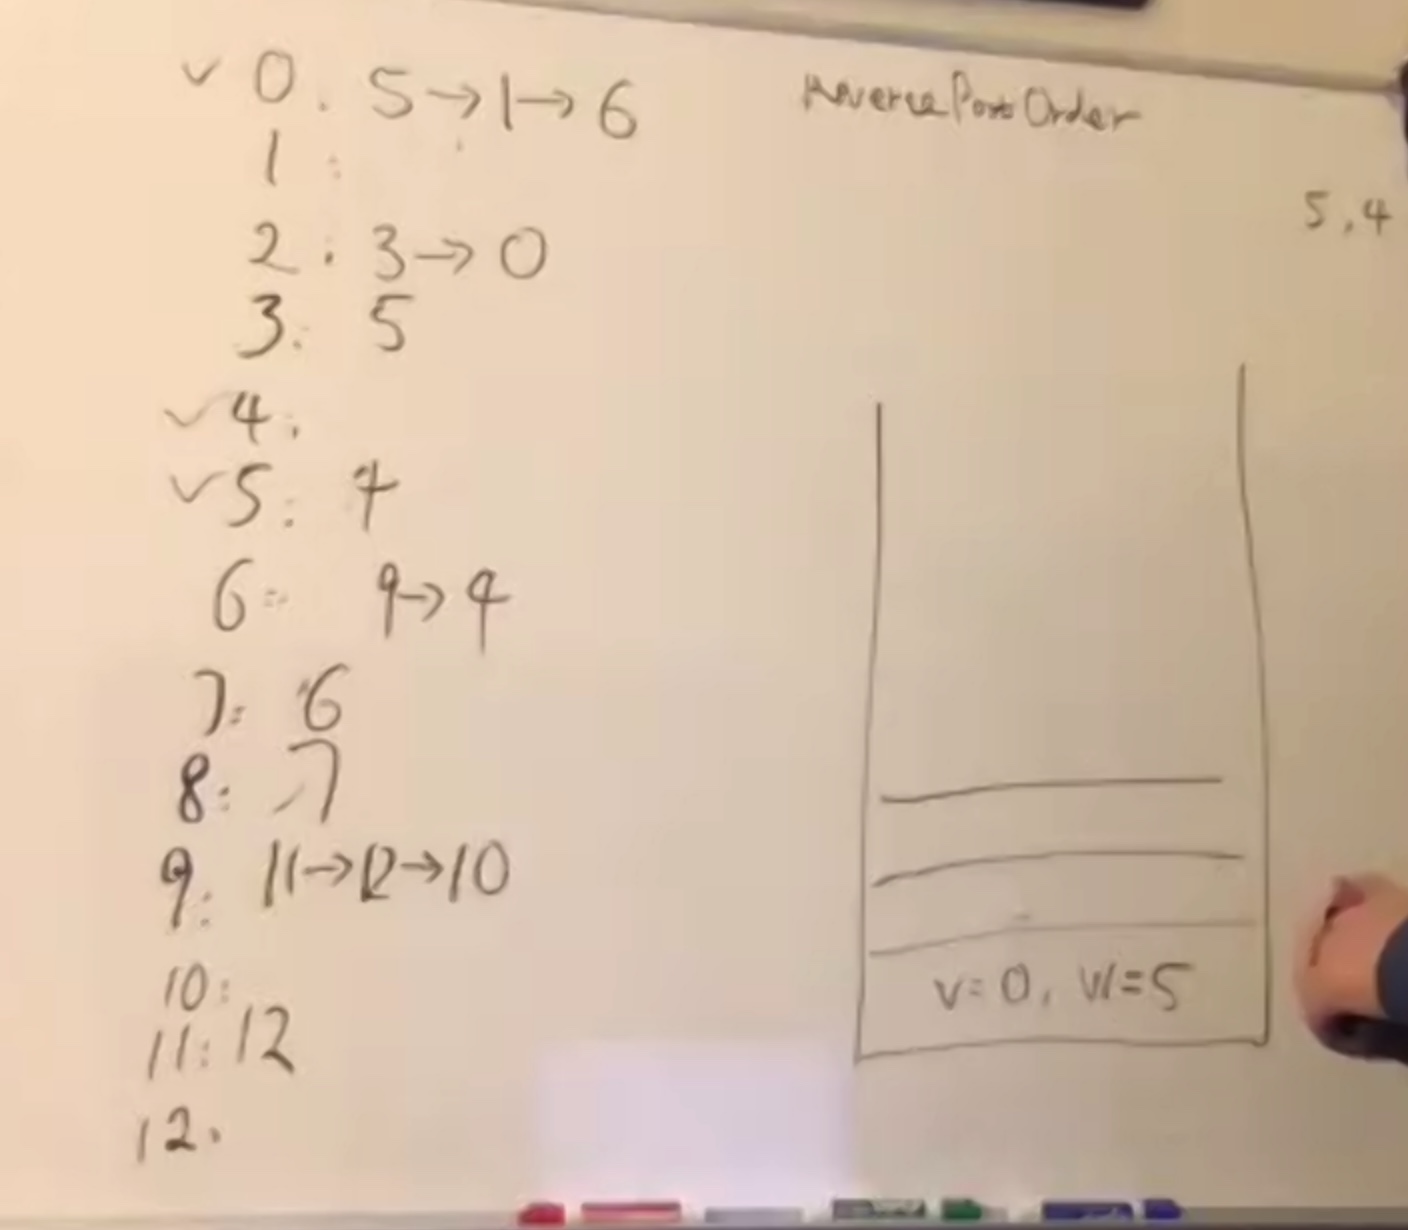 ✓ 0. 5→1→6
1:
2: 3→0
3: 5
✓ 4:
✓ 5: 4
6: 9→4
7: 6
8: 7
9: 11→12→10
10:
11: 12
12.
Reverse Post Order
5, 4
v=0, w=5